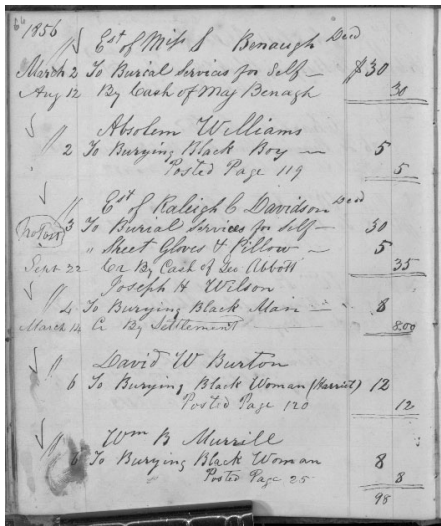 1856
" Est of Miss S Benaugh Decd
March 2 To Burial Services for Self — $30
Aug 12 By Cash of Maj Benagh 30
" Absolem Williams
2 To Burying Black Boy — 5
Posted Page 119 5
" Est of Raleigh C Davidson Decd
3 To Burial Services for Self — 30
" Sheet Gloves & Pillow — 5
Sept 22 Cr By Cash of Geo Abbott 35
" Joseph H Wilson
4 To Burying Black Man — 8
March 14 Cr By Settlement 8.00
" David W Burton
6 To Burying Black Woman (Harriet) 12
Posted Page 120 12
" Wm B Murrill
6 To Burying Black Woman 8
Posted Page 25 8
98